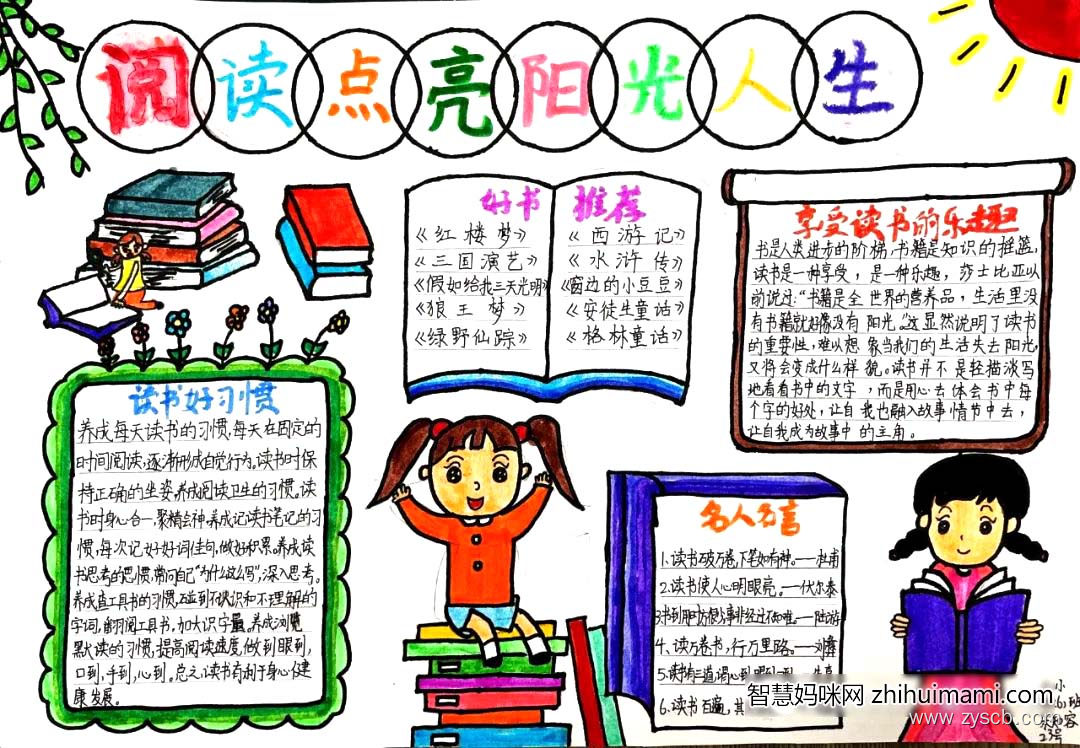 阅读点亮阳光人生
好书 推荐
《红楼梦》
《三国演艺》
《假如给我三天光明》
《狼王梦》
《绿野仙踪》
《西游记》
《水浒传》
《窗边的小豆豆》
《安徒生童话》
《格林童话》
享受读书的乐趣
书是人类进步的阶梯,书籍是知识的摇篮,
读书是一种享受，是一种乐趣，莎士比亚以
前说过:“书籍是全世界的营养品，生活里没
有书籍就好像没有阳光。”这显然说明了读书
的重要性,难以想象当我们的生活失去阳光,
又将会变成什么样貌。读书并不是轻描淡写
地看看书中的文字，而是用心去体会书中每
个字的好处，让自我也融入故事情节中去，
让自我成为故事中的主角。
读书好习惯
养成每天读书的习惯,每天在固定的
时间阅读,逐渐形成自觉行为。读书时保
持正确的坐姿,养成阅读卫生的习惯。读
书时身心合一,聚精会神。养成记读书笔记的习
惯,每次记好好词佳句,做好积累。养成读
书思考的思惯,常问自己“为什么这么写”,深入思考。
养成查工具书的习惯,碰到不认识和不理解的
字词,翻阅工具书,加大识字量。养成浏览
默读的习惯,提高阅读速度,做到眼到,
口到,手到,心到。总之,读书有利于身心健
康发展。
名人名言
1.读书破万卷,下笔如有神。——杜甫
2.读书使人心明眼亮。——伏尔泰
3.书到用时方恨少,事非经过不知难。——陆游
4、读万卷书，行万里路。——刘彝
5.读书有三道:谓心到
6.读书百遍,其
智慧妈咪网 zhihuimami.com
www.zyscb.com
23号